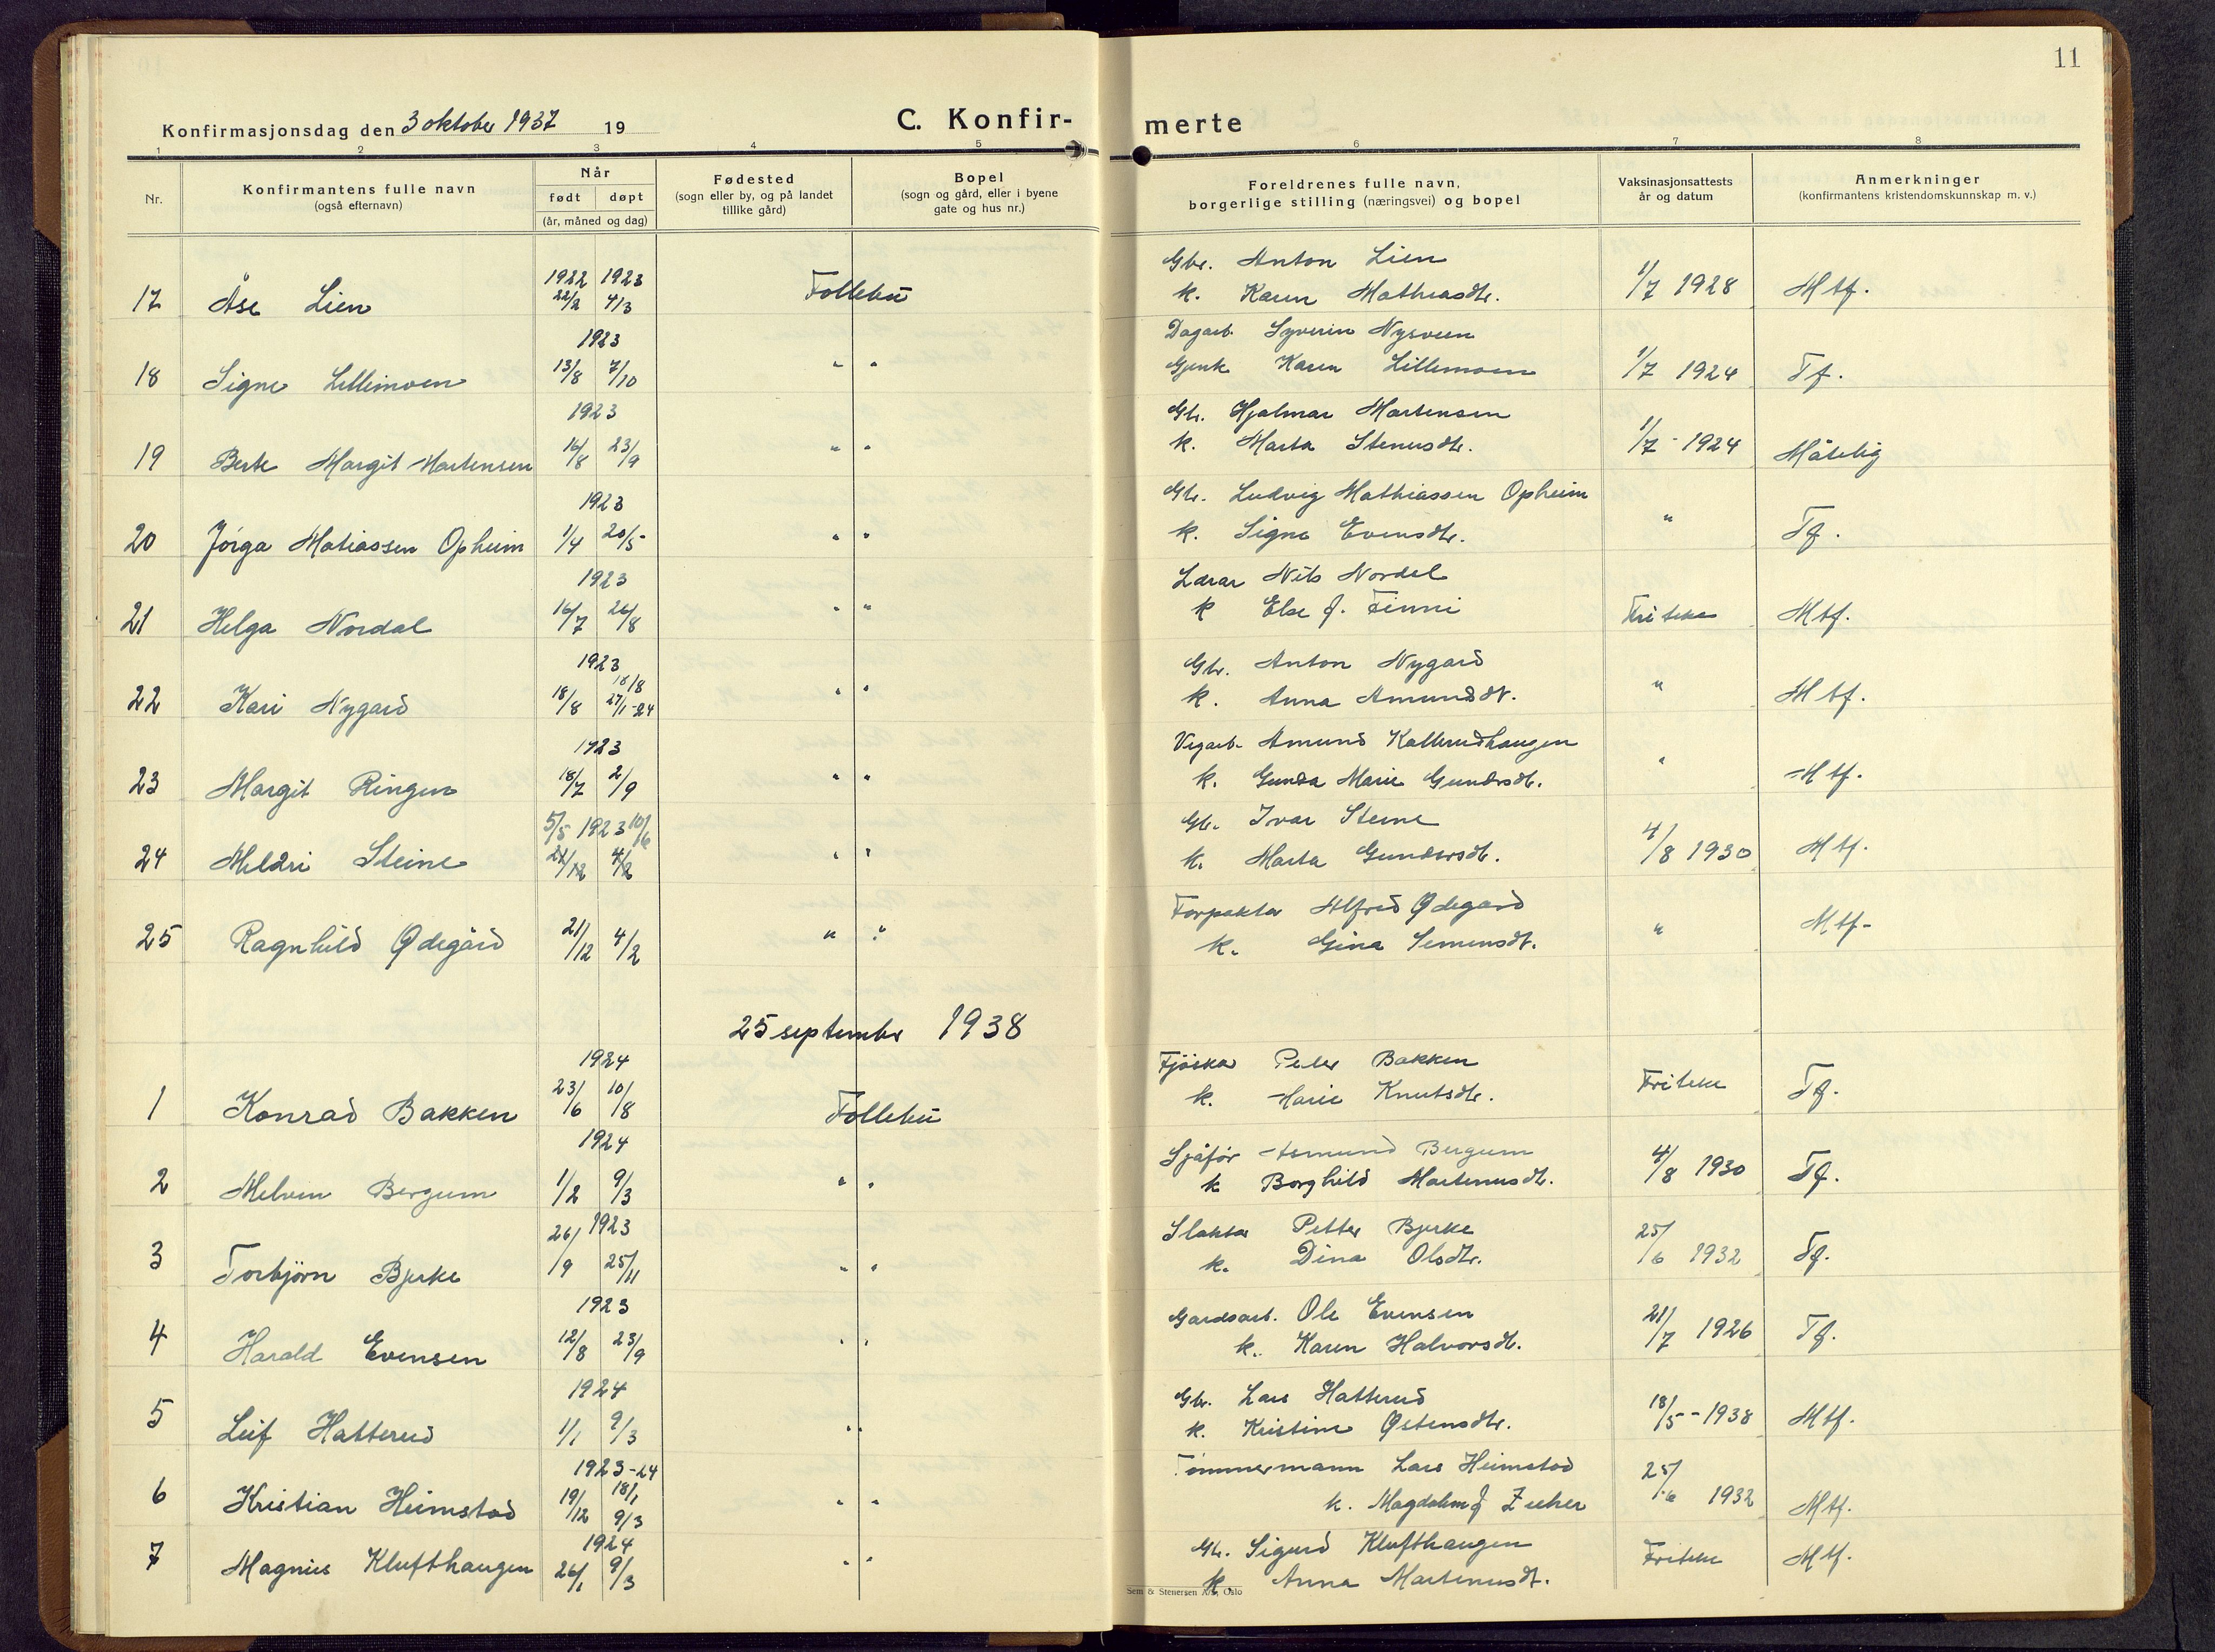 11
Konfirmasjonsdag den 3 oktober 1937 19
C. Konfir-
merte
1 2 3 4 5 6 7 8
Nr.
Konfirmantens fulle navn
(også efternavn)
Når
født døpt
(år, måned og dag)
Fødested
(sogn eller by, og på landet
tillike gård)
Bopel
(sogn og gård, eller i byene
gate og hus nr.)
Foreldrenes fulle navn,
borgerlige stilling (næringsvei) og bopel
Vaksinasjonsattests
år og datum
Anmerkninger
(konfirmantens kristendomskunnskap m. v.)
1922 1923 Gbr. Anton Lien
17 Åse Lien 22/2 4/3 Follebu k. Karen Mathiasdtr. 1/7 1928 Mtf.
1923 Dagarb. Syverin Nysveen
18 Signe Lillemoen 13/8 7/10 " " Gjenk Karen Lillemoen 1/7 1924 Tf.
1923 Gbr. Hjalmar Martensen
19 Berte Margit Martensen 16/8 23/9 " " k. Marta Stenusdtr. 1/7 - 1924 Måtelig
1923 Gbr. Ludvig Mathiassen Opheim
20 Jørga Matiassen Opheim 1/4 20/5 " " k. Signe Evensdtr. " Tf.
1923 Lærar Nils Nordal
21 Helga Nordal 16/7 26/8 " " k Else f. Finni Friteke Mtf.
1923 18/8 Gbr. Anton Nygard
22 Kari Nygard 18/8 27/1-24 " " k. Anna Amundsdt. " Mtf.
1923 Vegarb. Amund Kallerudhaugen
23 Margit Ringen 18/7 2/9 " " k. Gunda Marie Gundersdt. " Mtf.
5/5 1923 10/6 Gbr. Ivar Steine
24 Meldri Steine 21/12 4/2 " " k. Marta Gundersdt. 4/8 1930 Mtf.
Forpaktar Alfred Ødegard
25 Ragnhild Ødegård 21/12 4/2 " " k. Gina Semensdt. " Mtf.
25 septembr 1938
1924 Fjøskar Peter Bakken
1 Konrad Bakken 23/6 10/8 Follebu k. Marie Knutsdtr. Friteke Tf.
1924 Sjåfør Asmund Bergum
2 Melvin Bergum 1/2 9/3 " " k Borghild Martinusdt. 4/8 1930 Tf.
1923 Slaktar Petter Bjerke
3 Torbjørn Bjerke 26/9 25/11 " " k. Dina Olsdtr. 25/6 1932 Tf.
1923 Gardsarb. Ole Evensen
4 Harald Evensen 12/8 23/9 " " k. Karen Halvorsdt. 21/7 1926 Tf.
1924 Gbr. Lars Hatterud
5 Leif Hatterud 1/1 9/3 " " k. Kristine Østensdtr. 18/5 - 1938 Mtf.
1923-24 Tømmermann Lars Heimstad
6 Kristian Heimstad 19/12 18/1 9/3 " " k. Magdalena f 25/6 1932 Mtf.
1924 Gbr. Sigurd Klufthaugen
7 Magnus Klufthaugen 26/1 9/3 " " k. Anna Martinusdt. Friteke Mtf.
Sem & Stenersen A/S, Oslo